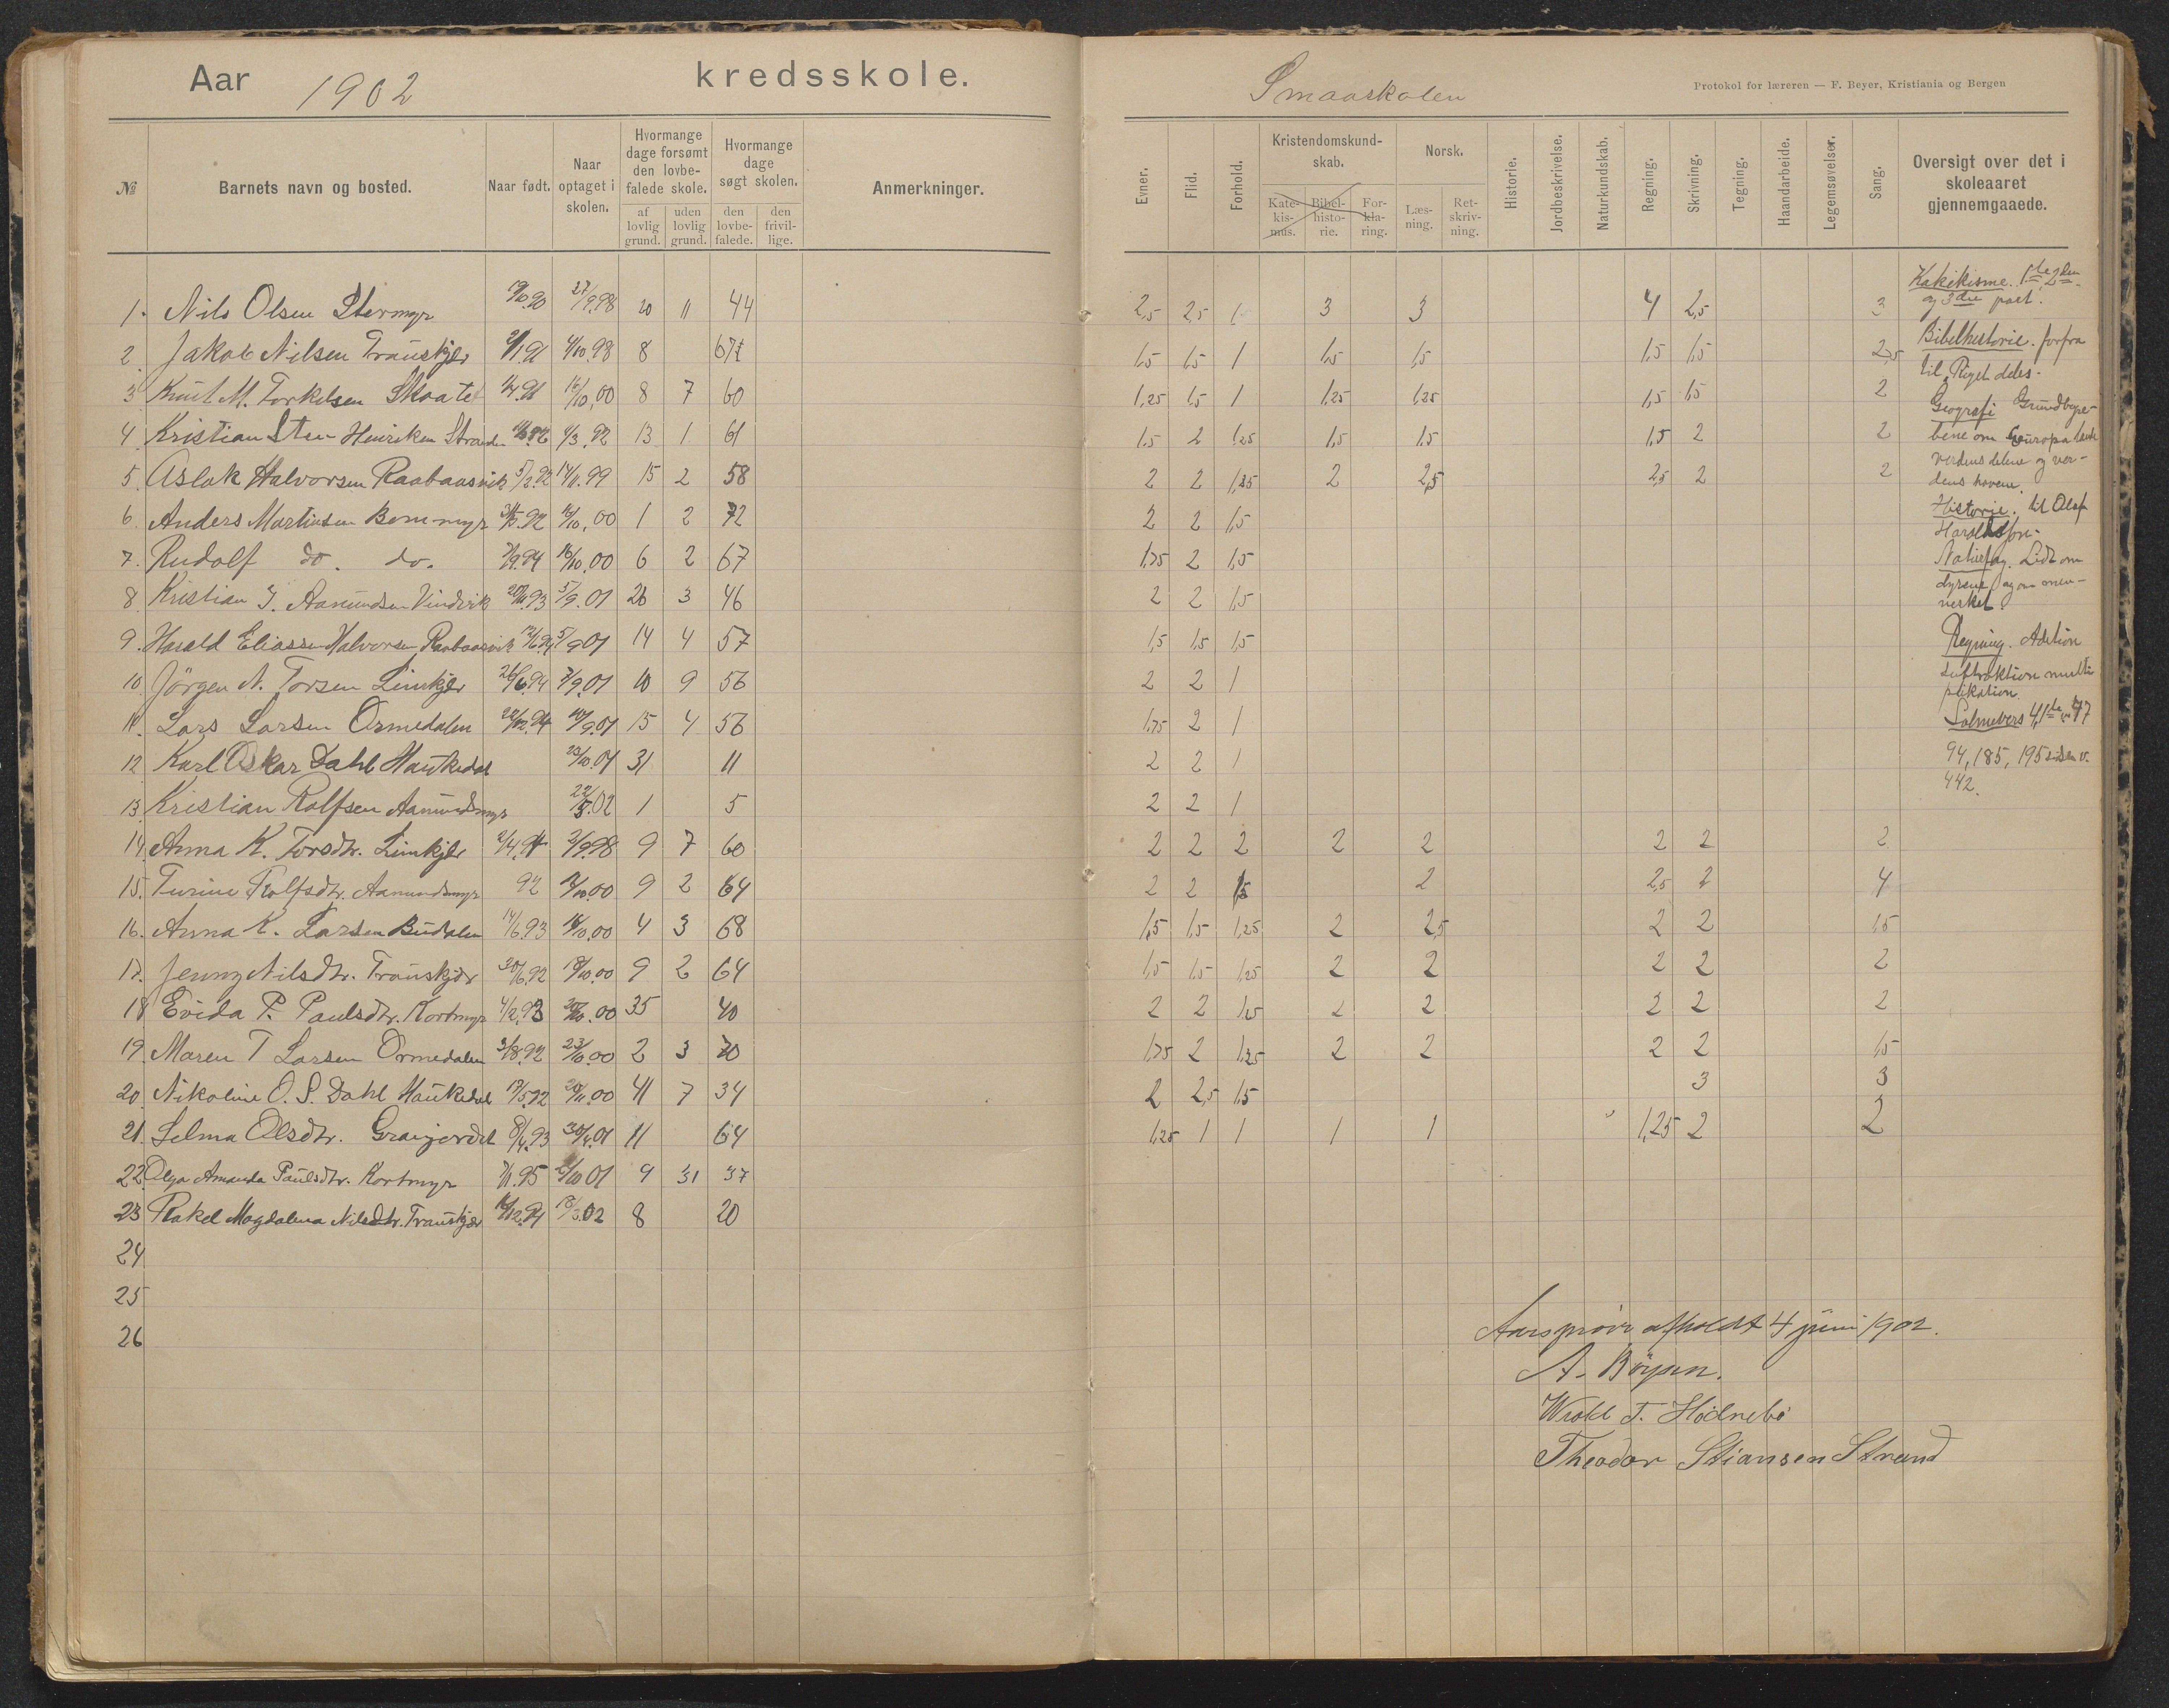 Aar 1902 kredsskole.
№ Barnets navn og bosted. Naar født. Naar optaget i skolen. Hvormange dage forsømt den lovbefalede skole. af lovlig grund. uden lovlig grund. Hvormange dage søgt skolen. den lovbefalede. den frivillige. Anmerkninger.
1. Nils Olsen Stermyr 27/9.98 20 11 44
2. Jakob Nilsen Trauskjær 4/10.98 8
3 Knut M. Torkelsen 16/10.00 8 7 60
4 Kristian Sten Henriksen 13 1 61
5. Aslak Halvorsen Raabaasvik 5/2.92 14/11.99 15 2 58
6. Anders Martinsen Bommyr 16/10.00 1 2 72
7. Rudolf do. do. 16/10.00 6 2 67
8. Kristian J. Aamundsen Vindvik 5/9.01 26 3 46
9. Harald Eliassen Halvorsen Raabaasvik 5/9 01 14 4 57
10. Jörgen N. Torsen Limkjer 26/6.94 10 9 56
11. Lars Larsen Ormedalen 15 4 56
12 Karl Oskar Dahl Haukedal 23/10.01 31 11
13. Kristian Rolfsen Aamundsmyr 22/5.02 1 5
14. Anna K. Torsdtr. Limkjer 9 7 60
15. Turine Rolfsdtr. Aamundsmyr 92 9 2 64
16. Anna K. Larsen Budalen 14/6.93 16/10.00 4 3 68
17. Jenny Nilsdtr. Trauskjær 30/6.92 18/10.00 9 2 64
18 Evida P. Paulsdtr. Kortmyr 4/2.93 35 40
19. Maren T Larsen Ormedalen 3/8.92 23/10.00 2 3 70
20. Nikoline O. S. Dahl Haukedal 17/5.92 41 7 34
21. Selma Olsdtr. 8/4.93 30/4.01 11 64
22. Olga Amanda Paulsdtr. Kortmyr 7/1.95 9 31 37
23 Rakel Magdalena Nilsdtr. Trauskjær 18/3.02 8 20
24
25
26
Smaaskolen
Protokol for læreren — F. Beyer, Kristiania og Bergen
Evner. Flid. Forhold. Kristendomskundskab. Katekismus. Bibelhistorie. Forklaring. Norsk. Læsning. Retskrivning. Historie. Jordbeskrivelse. Naturkundskab. Regning. Skrivning. Tegning. Haandarbeide. Legemsøvelser. Sang. Oversigt over det i skoleaaret gjennemgaaede.
2,5 2,5 1 3 3 4 2,5 3
1,5 1,5 1 1,5 1,5 1,5 1,5 2,5
1,25 1,5 1 1,25 1,25 1,5 1,5 2
1,5 2 1,25 1,5 1,5 1,5 2 2
2 2 1,25 2 2,5 2,5 2 2
2 2 1,5
1,75 2 1,5
2 2 1,5
1,5 1,5 1,5
2 2 1
1,75 2 1
2 2 1
2 2 1
2 2 2 2 2 2 2 2
2 2 1,5 2 2,5 2 4
1,5 1,5 1,25 2 2,5 2 2 1,5
1,5 1,5 1,25 2 2 2 2 2
2 2 1,25 2 2 2 2 2
1,75 2 1,25 2 2 2 2 1,5
2 2,5 1,5 3 3
1,25 1 1 1 1 1,25 2 2
Katekisme. 1ste 2den
og 3die part.
Bibelhistorie. forfra
til Riget deles.
Geografi Grundbegre-
bene om Europa
verdensdelene og ver-
dens havene.
Historie. til Olaf
Naturfag. Lidt om
dyrene og om men-
nesket.
Regning. Adition
suftraktion multi
plikation
Salmevers
94, 185, 195 v.
442.
Aarsprøve afholdt 4 juni 1902.
A. Böyan.
T. Hødnebø
Theodor Stiansen Strand